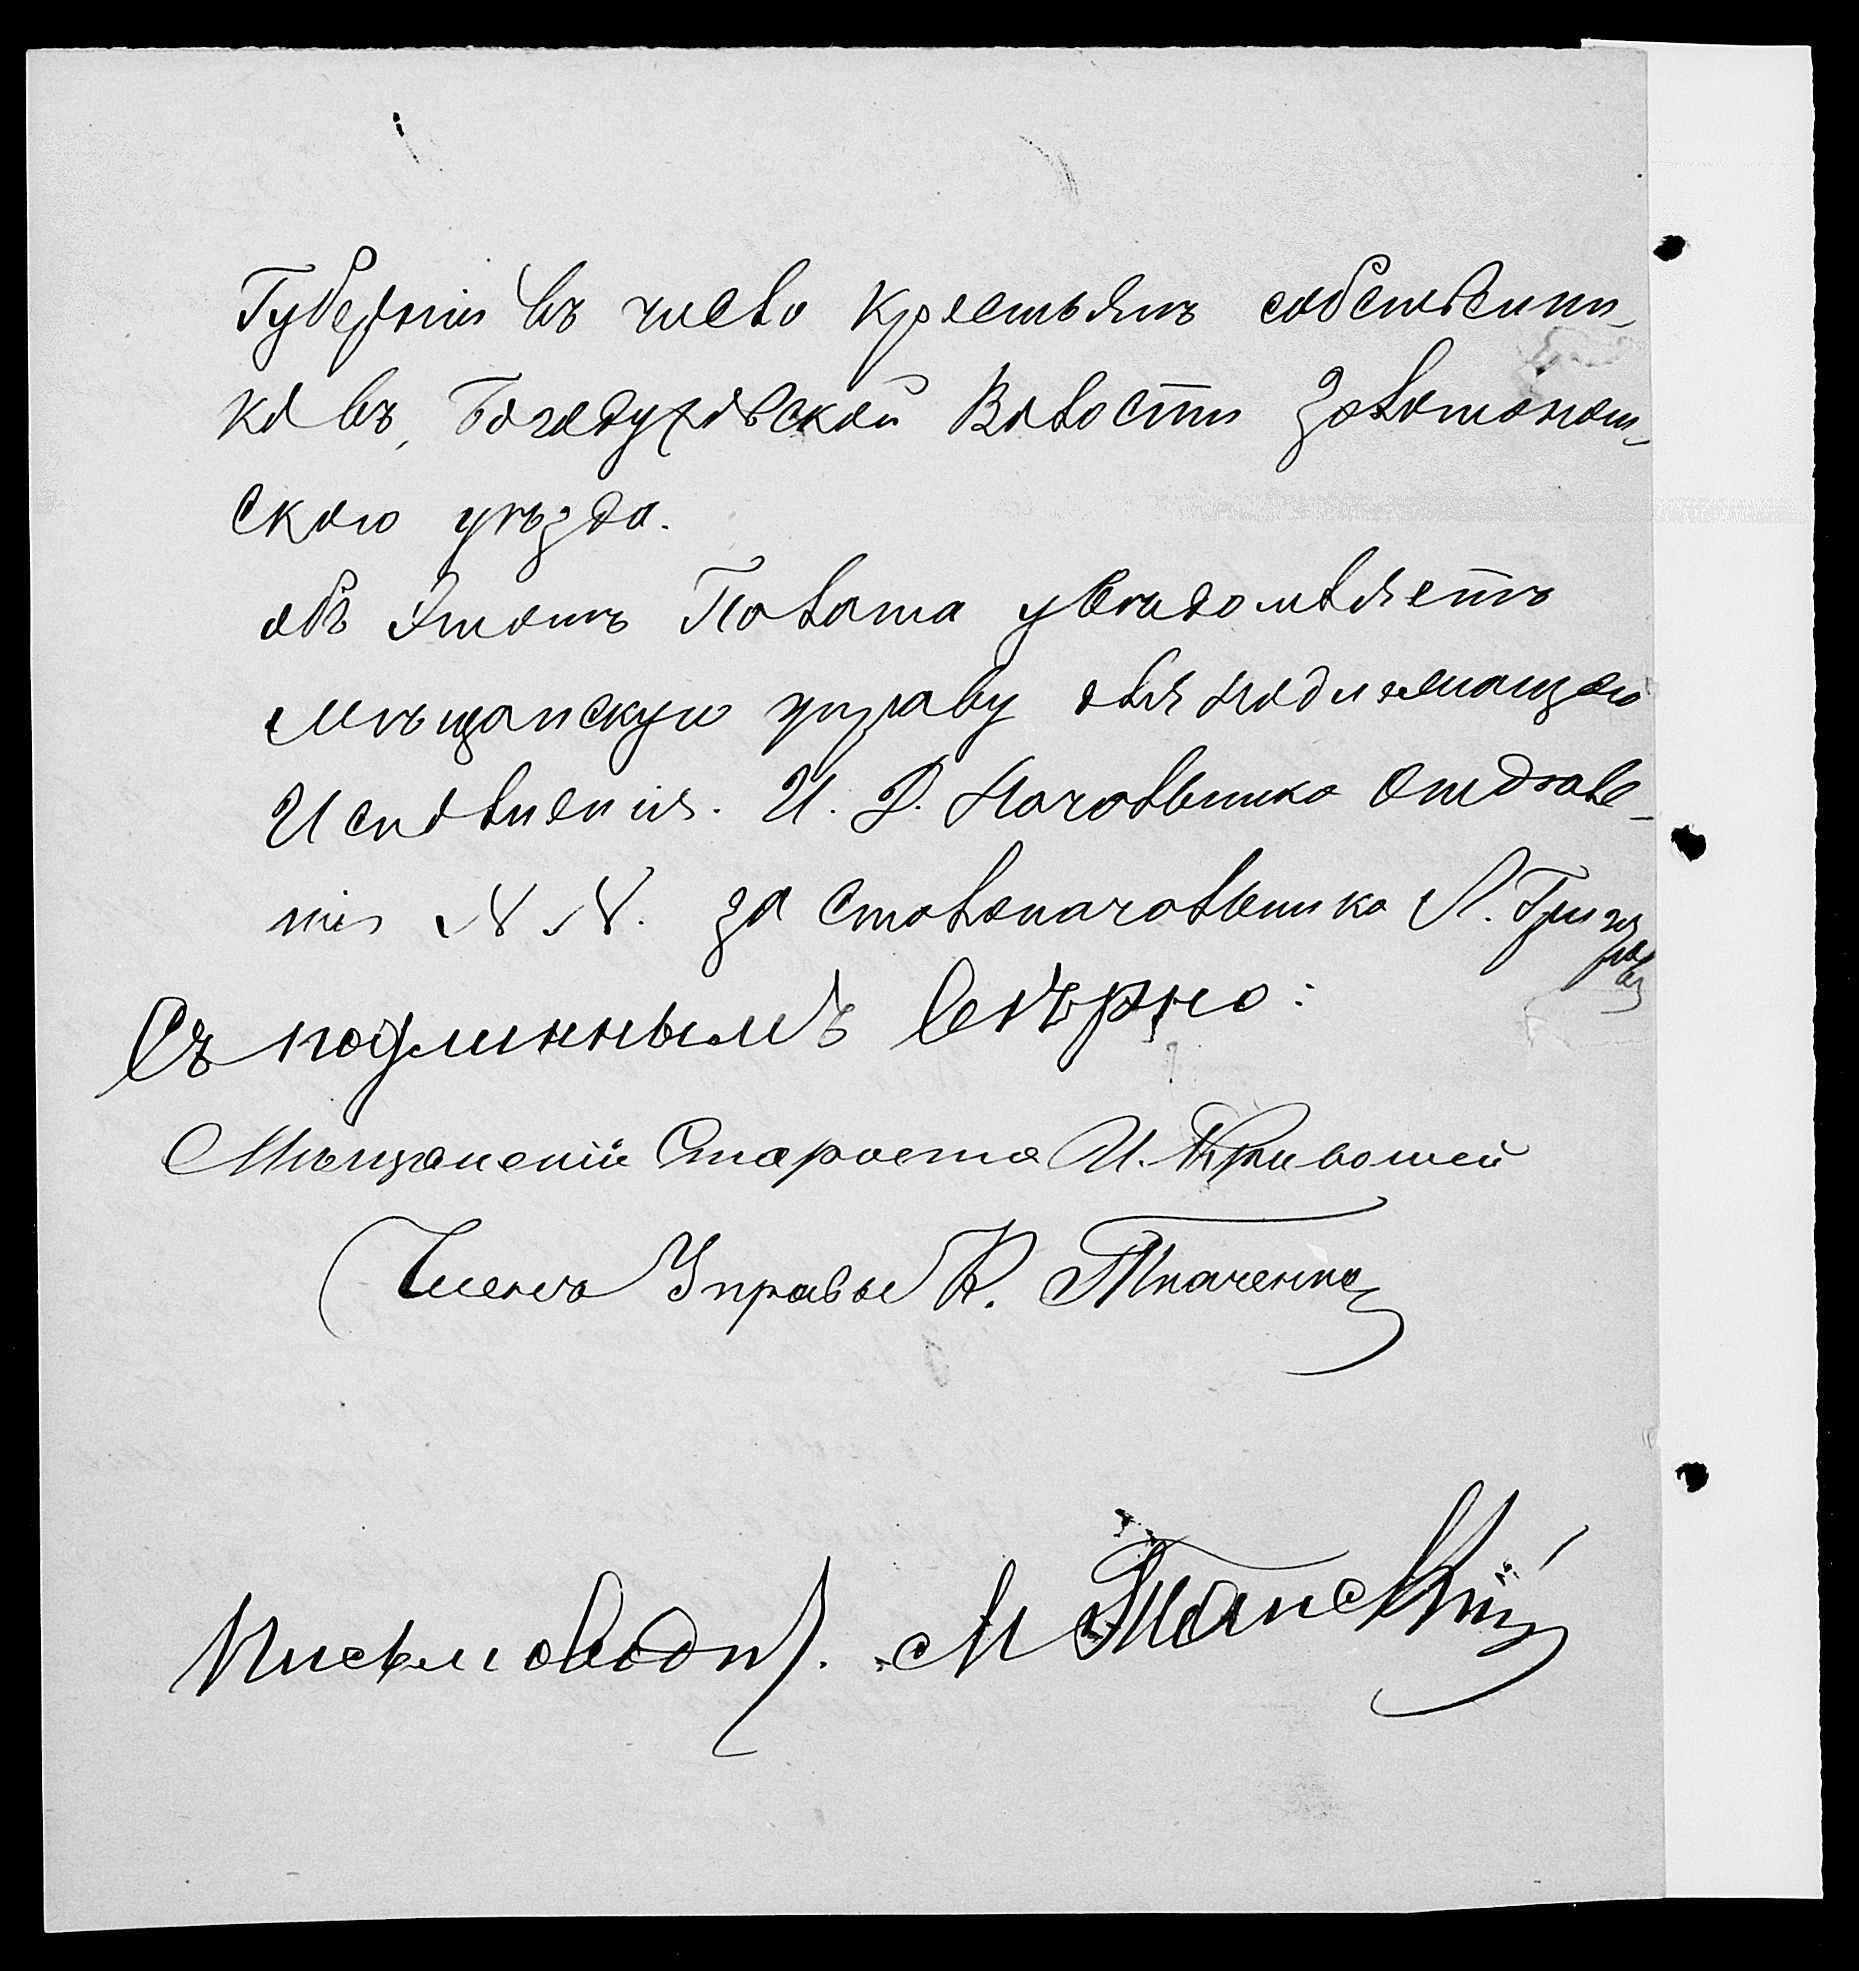 Губерніи въ число крестьянъ собственни-
ковъ, Богодуховской Волости Золотонош-
скаго уѣзда.
объ этомъ Палата увѣдомляетъ
Мѣщанскую управу для надлежащаго
Исполненія. И. Д. Начальника Отдѣле-
нія N N. за столоначальника Л. Григоровъ
Съ подлиннымъ вѣрно:
Мѣщанскій Староста И. Кривошей
Членъ Управы К. Ткаченко
Письмоводит. М